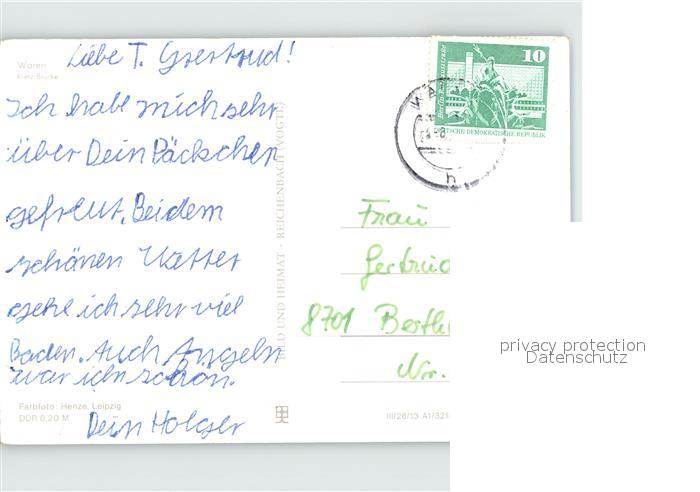 Waren
Kietz Brücke
Liebe T. Gertrud!
Ich habe mich sehr
über Dein Päckchen
gefreut. Bei dem
schönen Wetter
gehe ich sehr viel
Baden. Auch Angeln
war ich schon.
Dein Holger
Farbfoto: Henze, Leipzig
DDR 0,20 M
BILD UND HEIMAT · REICHENBACH (VOGTL)
III/26/13 A1/321
10
DEUTSCHE DEMOKRATISCHE REPUBLIK
WA
h
Frau
Gertrud
8701 Berth
Nr.
privacy protection
Datenschutz